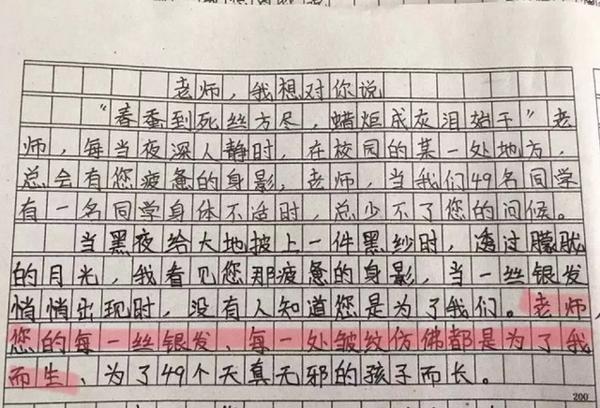 老师，我想对你说
“春蚕到死丝方尽，蜡炬成灰泪始干”老
师，每当夜深人静时，在校园的某一处地方，
总会有您疲惫的身影，老师，当我们49名同学
有一名同学身体不适时，总少不了您的问候。
当黑夜给大地披上一件黑纱时，透过朦胧
的月光，我看见您那疲惫的身影，当一丝银发
悄悄出现时，没有人知道您是为了我们。老师
您的每一丝银发、每一处皱纹仿佛都是为了我
而生、为了49个天真无邪的孩子而长。
200